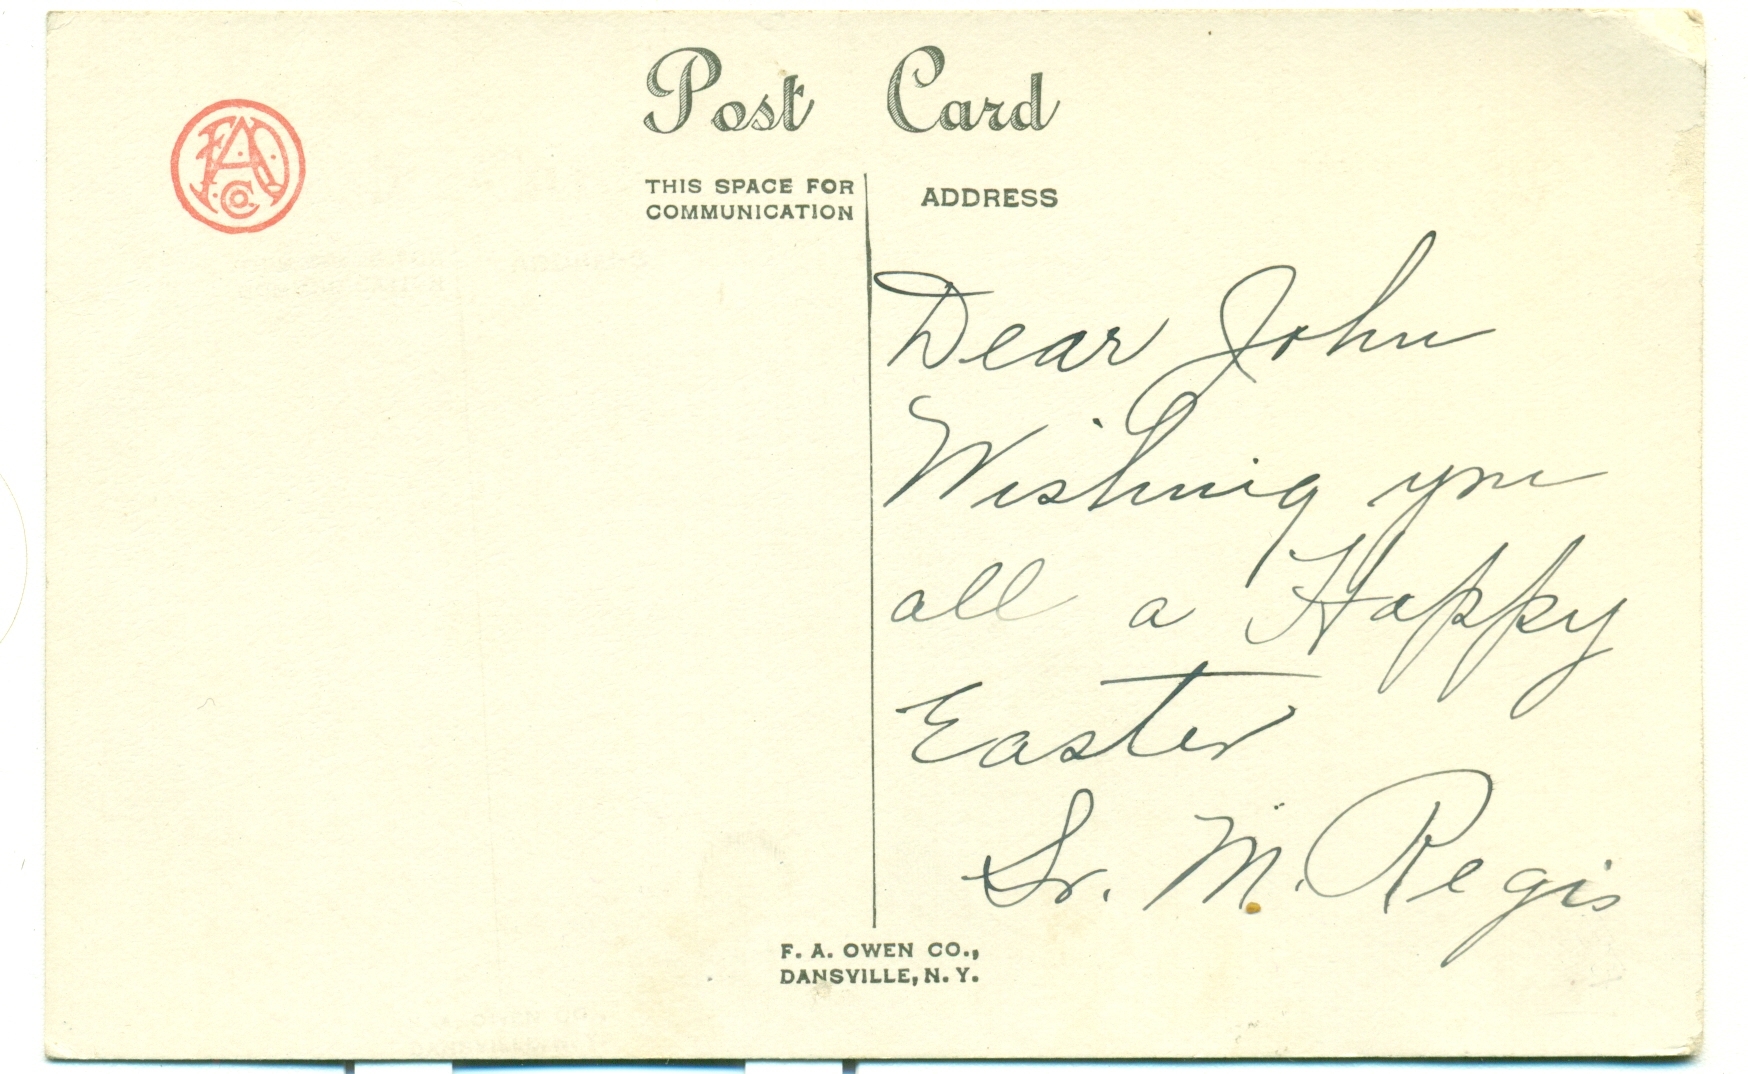 Post Card
FAO
Co.
THIS SPACE FOR
COMMUNICATION
ADDRESS
Dear John
Wishing you
all a Happy
Easter
Sr. M. Regis
F. A. OWEN CO.,
DANSVILLE, N. Y.